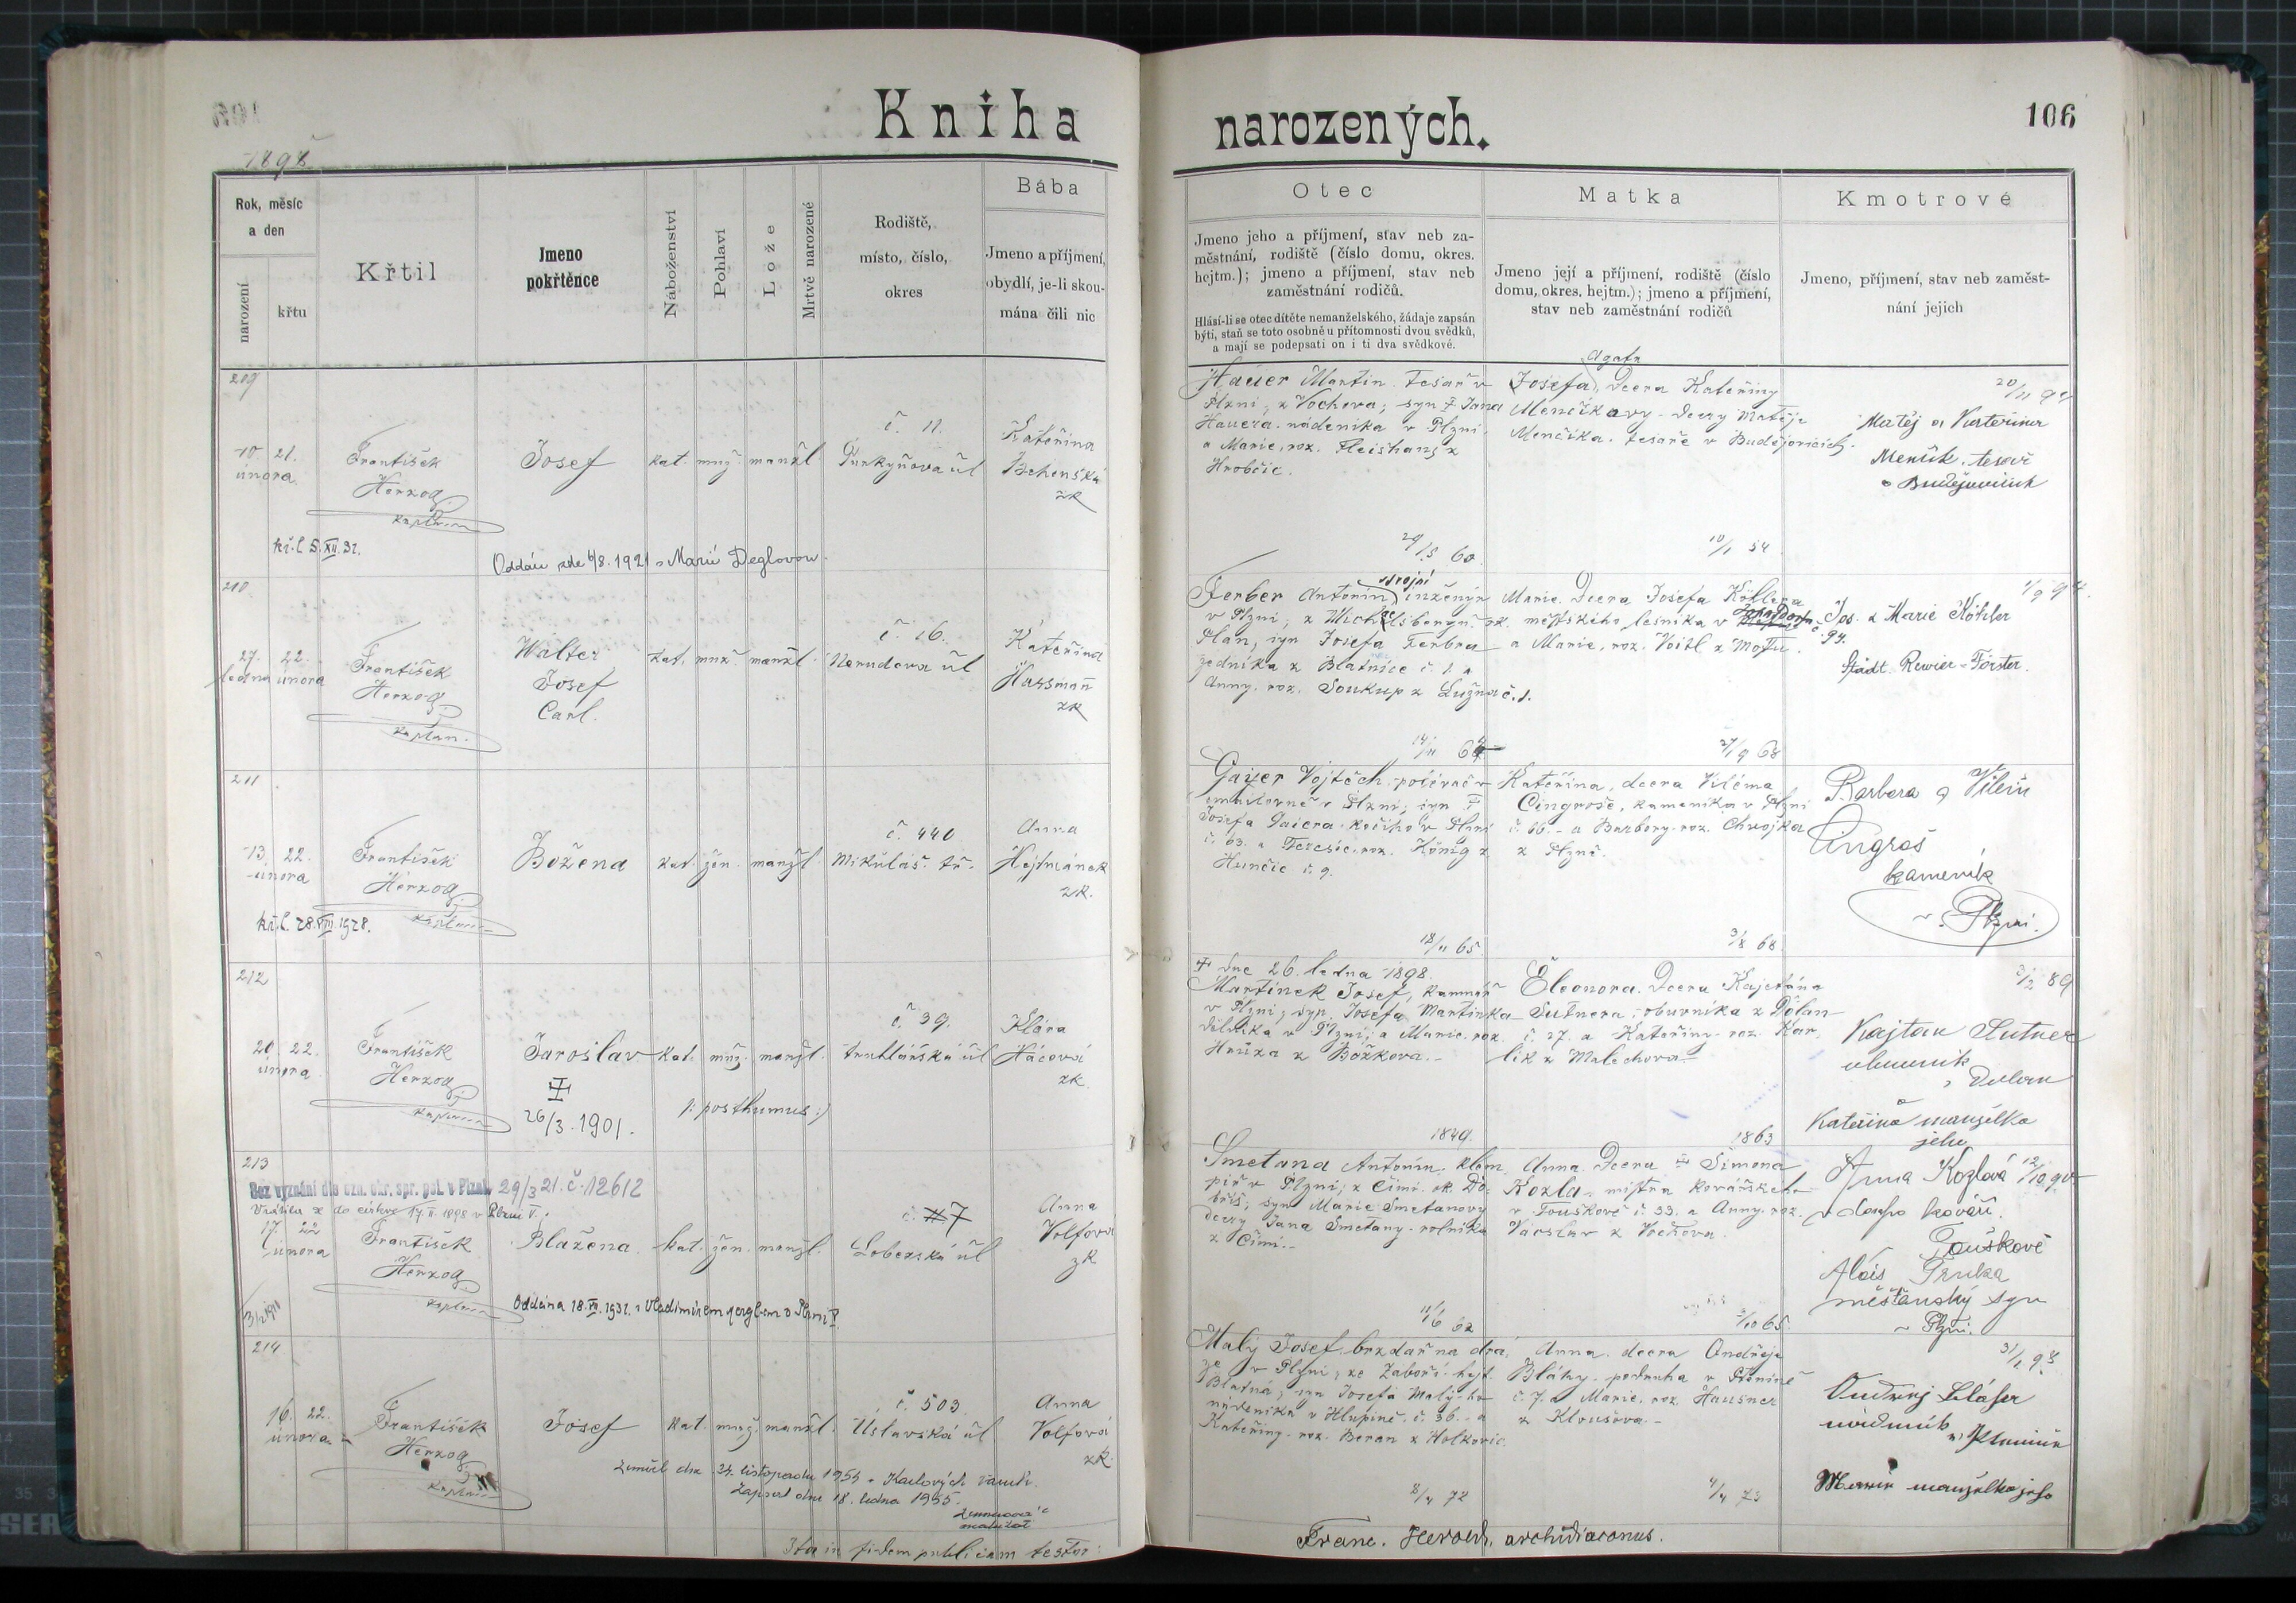 Kniha
narozených.
106
1898
Rok, měsíc
a den
narození
křtu
Křtil
Jmeno
pokřtěnce
Náboženství
Pohlaví
Lože
Mrtvě narozené
Rodiště,
místo, číslo,
okres
Bába
Jmeno a příjmení,
obydlí, je-li skou-
mána čili nic
Otec
Jmeno jeho a příjmení, stav neb za-
městnání, rodiště (číslo domu, okres.
hejtm.); jmeno a příjmení, stav neb
zaměstnání rodičů.
Hlásí-li se otec dítěte nemanželského, žádaje zapsán
býti, staň se toto osobně u přítomnosti dvou svědků,
a mají se podepsati on i ti dva svědkové.
Matka
Jmeno její a příjmení, rodiště (číslo
domu, okres. hejtm.); jmeno a příjmení,
stav neb zaměstnání rodičů
Kmotrové
Jmeno, příjmení, stav neb zaměst-
nání jejich
209
10. 21.
února
František
Herzog
kaplan
Josef
kat. muž. manžl
č. 11.
Purkyňova ul
Kateřina
zk
kř. l. 5. XII. 31.
Oddán zde 6/8. 1921 s Marií Deglovou.
Hauer Martin. tesař v
Plzni, z Vochova; syn ‡ Jana
Hauera. nádeníka v Plzni,
a Marie, roz. Fleishans z
Hrobčic.
29/5 60
Agata
Josefa, dcera Kateřiny
Menčíkovy. dcery Matěje
Menčíka. tesaře v Budějovicích.
10/1 54
20/11 97
Matěj a Kateřina
Menčík, tesař
v Budějovicích
210
27. 22.
ledna února
František
Herzog
kaplan.
Walter
Josef
Carl.
kat. muž. manžl.
č. 16.
Nerudova ul
Kateřina
Hassmann
zk
strojní
Ferber Antonín, inženýr
v Plzni, z Michelsbergu. ok.
Plan, syn Josefa Ferbra
z Blatnice č. 1. a
Anny. roz. Soukup z Lužna č. 1.
14/11 64
Marie. dcera Josefa Köhlera
městského lesníka v
č. 94.
a Marie, roz. Voitl z
27/9 68
Jos. a Marie Köhler
Städt. Revier-Förster.
211
13. 22.
února
František
Herzog
kaplan
Božena
kat. žen. manžl.
č. 440
Mikuláš. tř.
Anna
Hejtmánek
zk.
kř. l. 28. VIII. 1928.
Gaier Vojtěch, polévač v
smaltovně v Plzni; syn ‡
Josefa Gaiera. kočího v Plzni
č. 63. a Terezie. roz. König z
Hunčic č. 9.
18/11 65
Kateřina, dcera Viléma
Cingroše, kameníka v Plzni
č. 66. - a Barbory. roz. Chvojka
z Plzně.
3/8 68.
Barbora a Vilém
Cingroš
kameník
v Plzni.
212
20. 22.
února
František
Herzog
kaplan
Jaroslav
‡
26/3. 1901.
kat. muž. manžl.
/: posthumus :/
č. 39.
truhlářská ul
Klára
Hácová
zk.
‡ dne 26. ledna 1898.
Martínek Josef, kamnář
v Plzni; syn. Josefa Martínka
dělníka v Plzni; a Marie. roz.
Hrůza z Božkova. -
1849.
Eleonora. dcera Kajetána
Sutnera; obuvníka z Dolan
č. 27. a Kateřiny. roz. Kar-
lík z Malechova. -
1863
2/2 89
Kajtan Sutner
obuvník
z Dolan
Kateřina manželka
jeho
213
Bez vyznání dle ozn. okr. spr. pol. v Plzni 29/3 21. č. 12612
17. 22
února
František
Herzog
kaplan
Blažena
kat. žen. manžl.
č. 7
Lobezská ul
Anna
Volfová
zk
3/2 1911
Oddána 18. VII. 1931. s Vladimírem Perglem v Plzni P.
Smetana Antonín. klem-
píř v Plzni; z Čimi. ok. Do-
bříš; syn Marie Smetanovy
dcery Jana Smetany. rolníka
z Čimi. -
11/6 62
Anna. dcera ‡ Šimona
Kozla. mistra kovářského
v Touškově č. 33. a Anny. roz.
Václav z Vochova.
3/10 65.
Anna Kozlová
vdova kováři.
Touškově
Alois
měšťanský syn
v Plzni.
214
16. 22.
února
František
Herzog
kaplan
Josef
kat. muž. manžl.
č. 503.
Úslavská ul
Anna
Volfová
zk.
Zemřel dne 24. listopadu 1954 v Karlových Varech.
Zapsal dne 18. ledna 1955.
Malý Josef, brzdař na drá-
ze v Plzni; ze Záboří. hejt.
Blatná; syn Josefa Malý-ho
nádeníka v Hlupíně. č. 36. - a
Kateřiny. roz. Beran z Holkovic.
8/4 72
Anna. dcera Ondřeje
Bláhy. podruha v
č. 7. a Marie. roz. Hausner
z Kloušova. -
4/4 73
31/1 98
Ondřej Bláha
Marie manželka jeho
Ita in fidem publicam testor:
Franc. Herold, archidiaconus.